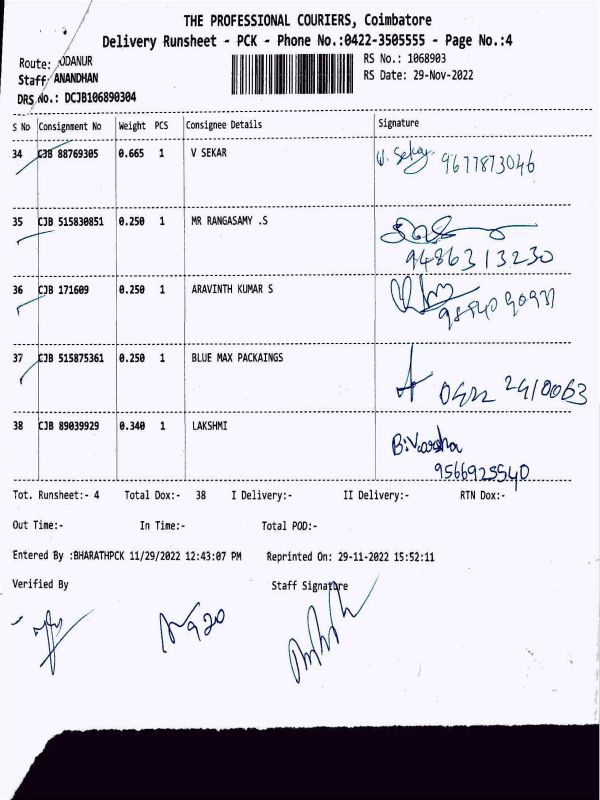 THE PROFESSIONAL COURIERS, Coimbatore
Delivery Runsheet - PCK - Phone No.:0422-3505555 - Page No.:4
Route: ODANUR
RS No.: 1068903
Staff: ANANDHAN
RS Date: 29-Nov-2022
DRS No.: DCJB106890304
S No Consignment No Weight PCS Consignee Details Signature
34 CJB 88769305 0.665 1 V SEKAR V. Sekar 9677873046
35 CJB 515830851 0.250 1 MR RANGASAMY .S
9486313230
36 CJB 171609 0.250 1 ARAVINTH KUMAR S
37 CJB 515875361 0.250 1 BLUE MAX PACKAINGS
0422 2410063
38 CJB 89039929 0.340 1 LAKSHMI B.Varsha
9566925540
Tot. Runsheet:- 4 Total Dox:- 38 I Delivery:- II Delivery:- RTN Dox:-
Out Time:- In Time:- Total POD:-
Entered By :BHARATHPCK 11/29/2022 12:43:07 PM Reprinted On: 29-11-2022 15:52:11
Verified By Staff Signature